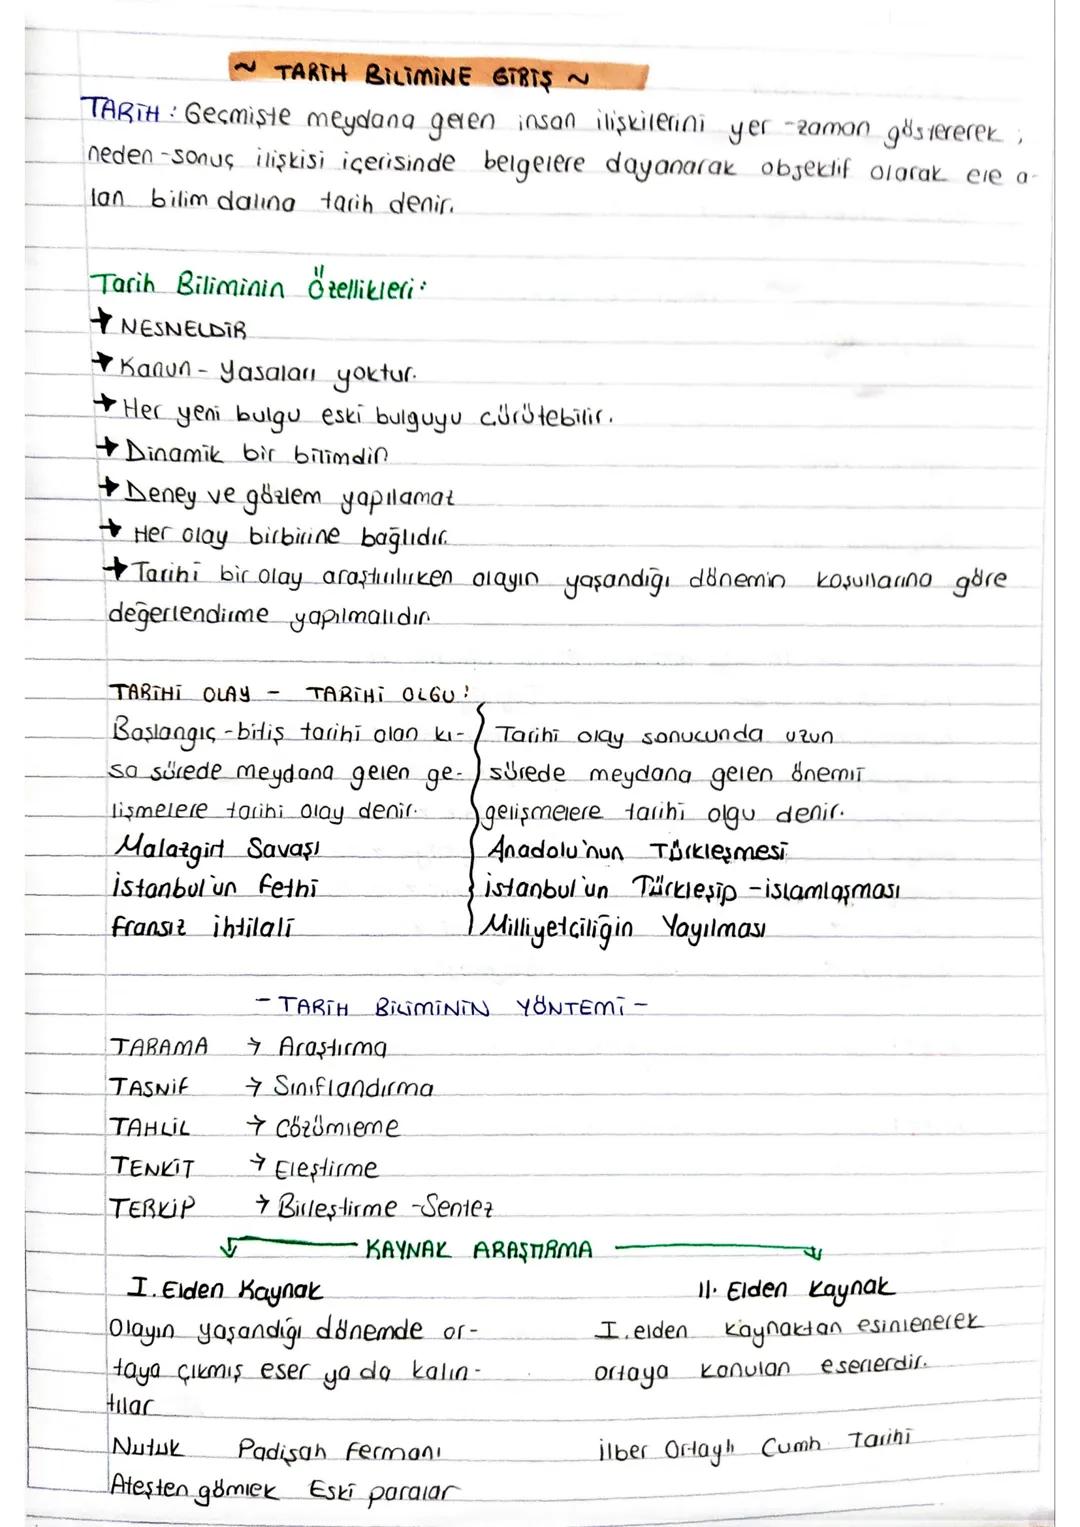 ~ TARİH BİLİMİNE GİRİŞ ~
TARİH : Geçmişte meydana gelen insan ilişkilerini yer -zaman göstererek ;
neden -sonuç ilişkisi içerisinde belgelere dayanarak objektif olarak ele a-
lan bilim dalına tarih denir.
Tarih Biliminin Özellikleri :
→ NESNELDİR
→ Kanun - Yasaları yoktur.
→ Her yeni bulgu eski bulguyu çürütebilir.
→ Dinamik bir bilimdir.
→ Deney ve gözlem yapılamaz
→ Her olay birbirine bağlıdır.
→ Tarihi bir olay araştırılırken olayın yaşandığı dönemin koşullarına göre
değerlendirme yapılmalıdır.
TARİHİ OLAY - TARİHİ OLGU :
Başlangıç -bitiş tarihi olan kı-
sa sürede meydana gelen ge-
lişmelere tarihi olay denir.
Malazgirt Savaşı
istanbul'un fethi
fransız ihtilali
Tarihi olay sonucunda uzun
sürede meydana gelen önemli
gelişmelere tarihi olgu denir.
Anadolu'nun Türkleşmesi
istanbul'un Türkleşip -islamlaşması
Milliyetçiliğin Yayılması
- TARİH BİLİMİNİN YÖNTEMİ -
TARAMA → Araştırma
TASNİF → Sınıflandırma
TAHLİL → Çözümleme
TENKİT → Eleştirme
TERKİP → Birleştirme -Sentez
KAYNAK ARAŞTIRMA
I. Elden Kaynak
Olayın yaşandığı dönemde or-
taya çıkmış eser ya da kalın-
tılar
Nutuk Padişah Fermanı
Ateşten gömlek Eski paralar
II. Elden Kaynak
I. elden kaynaktan esinlenerek
ortaya konulan eserlerdir.
ilber Ortaylı Cumh. Tarihi